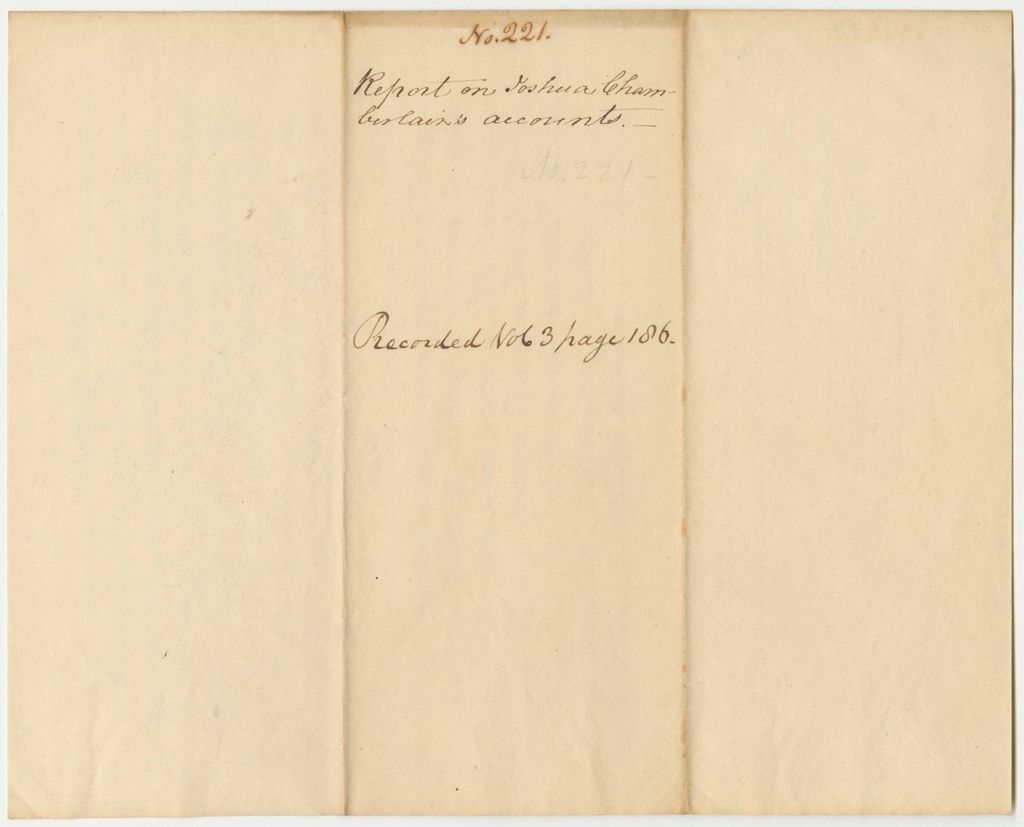 No. 221.
Report on Joshua Cham-
berlain's accounts. —
No. 221 —
Recorded Vol 3 page 186.